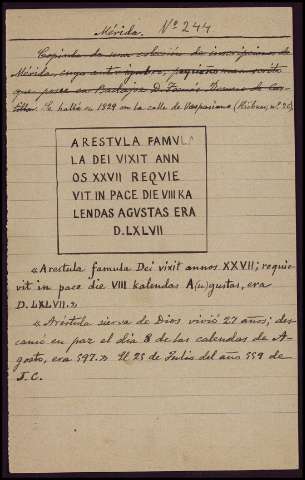 Mérida. Nº 244
Copiada de una colección de inscripciones de
Mérida, cuyo antiguo, pequeño manuscrito
que para en Badajoz D. Tomás Romero de Cas-
tilla. Se halló en 1829 en la calle de Vespasiano (Hübner, nº 26).
ARESTVLA FAMVL
LA DEI VIXIT ANN
OS XXVII REQVIE
VIT IN PACE DIE VIII KA
LENDAS AGVSTAS ERA
D.LXLVII
«Arestula famula Dei vixit annos XXVII; requie-
vit in pace die VIII kalendas A(u)gustas, era
D.LXLVII.»
«Aréstula sierva de Dios vivió 27 años; des-
cansó en paz el dia 8 de las calendas de A-
gosto, era 597.» El 25 de Julio del año 559 de
J.C.